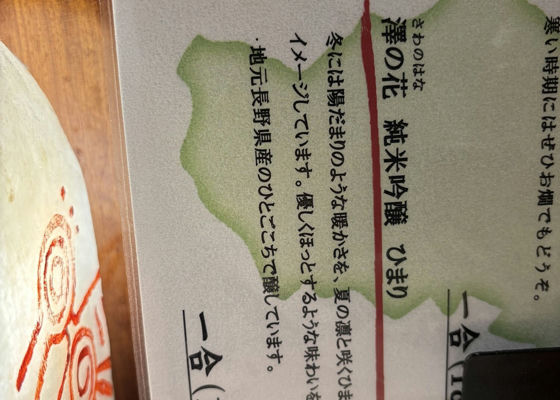 寒い時期にはぜひお燗でもどうぞ。
一合(1
さわのはな
澤の花 純米吟醸 ひまり
冬には陽だまりのような暖かさを、夏の凛と咲くひま
イメージしています。優しくほっとするような味わいを
・地元長野県産のひとごこちで醸しています。
一合(